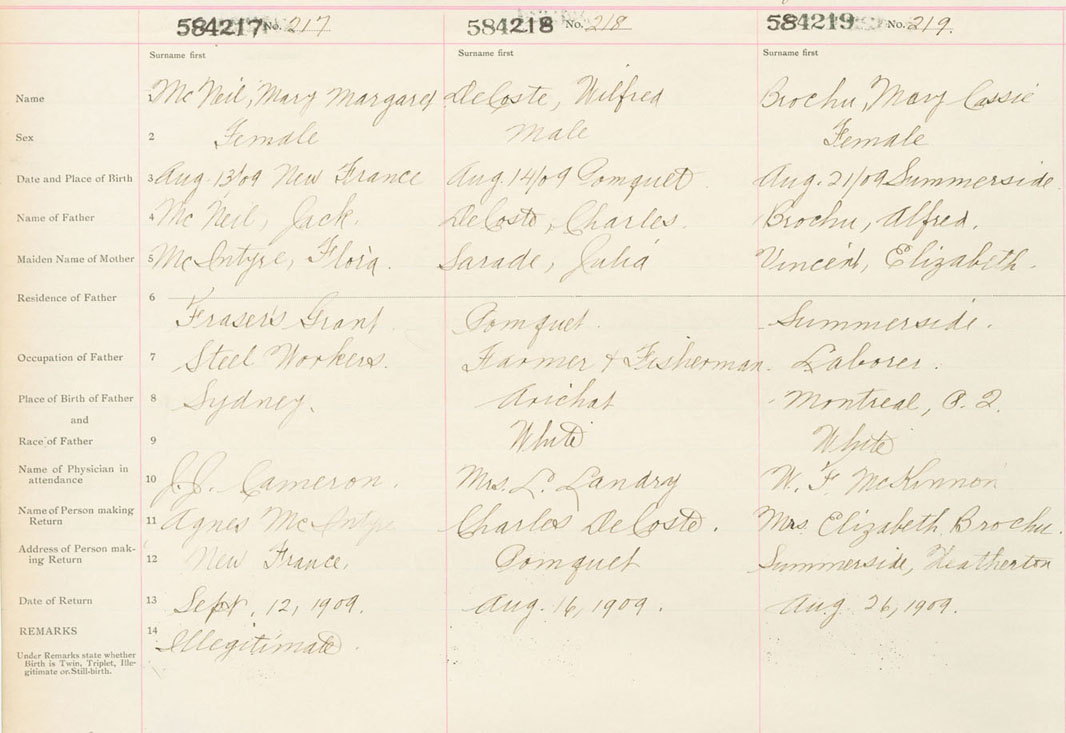 584217 No. 217 584218 No. 218 584219 No. 219.
Surname first Surname first Surname first
Name McNeil, Mary Margaret DeCoste, Wilfred Brochu, Mary Cassie
Sex 2 Female Male Female
Date and Place of Birth 3 Aug. 13/09 New France Aug. 14/09 Pomquet Aug. 21/09 Summerside
Name of Father 4 McNeil, Jack. DeCoste, Charles. Brochu, Alfred.
Maiden Name of Mother 5 McIntyre, Flora. Sarade, Julia Vincent, Elizabeth.
Residence of Father 6
Fraser's Grant. Pomquet. Summerside.
Occupation of Father 7 Steel Workers. Farmer & Fisherman. Laborer.
Place of Birth of Father 8 Sydney. Arichat Montreal, P.Q.
and
Race of Father 9 White White
Name of Physician in
attendance 10 J.J. Cameron. Mrs. L. Landry W. F. McKinnon
Name of Person making
Return 11 Agnes McIntyre Charles DeCoste. Mrs Elizabeth Brochu.
Address of Person mak-
ing Return 12 New France. Pomquet Summerside, Heatherton
Date of Return 13 Sept. 12, 1909. Aug. 16, 1909. Aug. 26, 1909.
REMARKS 14 Illegitimate.
Under Remarks state whether
Birth is Twin, Triplet, Ille-
gitimate or Still-birth.